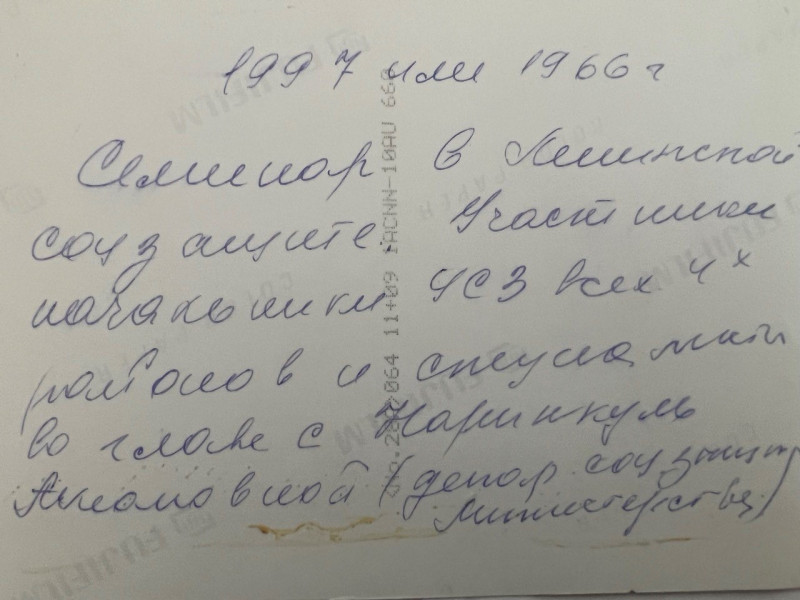 1997 или 1966 г
Семинар в Ленинской
соцзащите. Участники
начальники УСЗ всех 4х
районов и специалисты
во главе с Нарынкуль
(депар. соцзащиты
Министерства)
No. 064 11+09 1ACNN-10AU 660
FUJIFILM